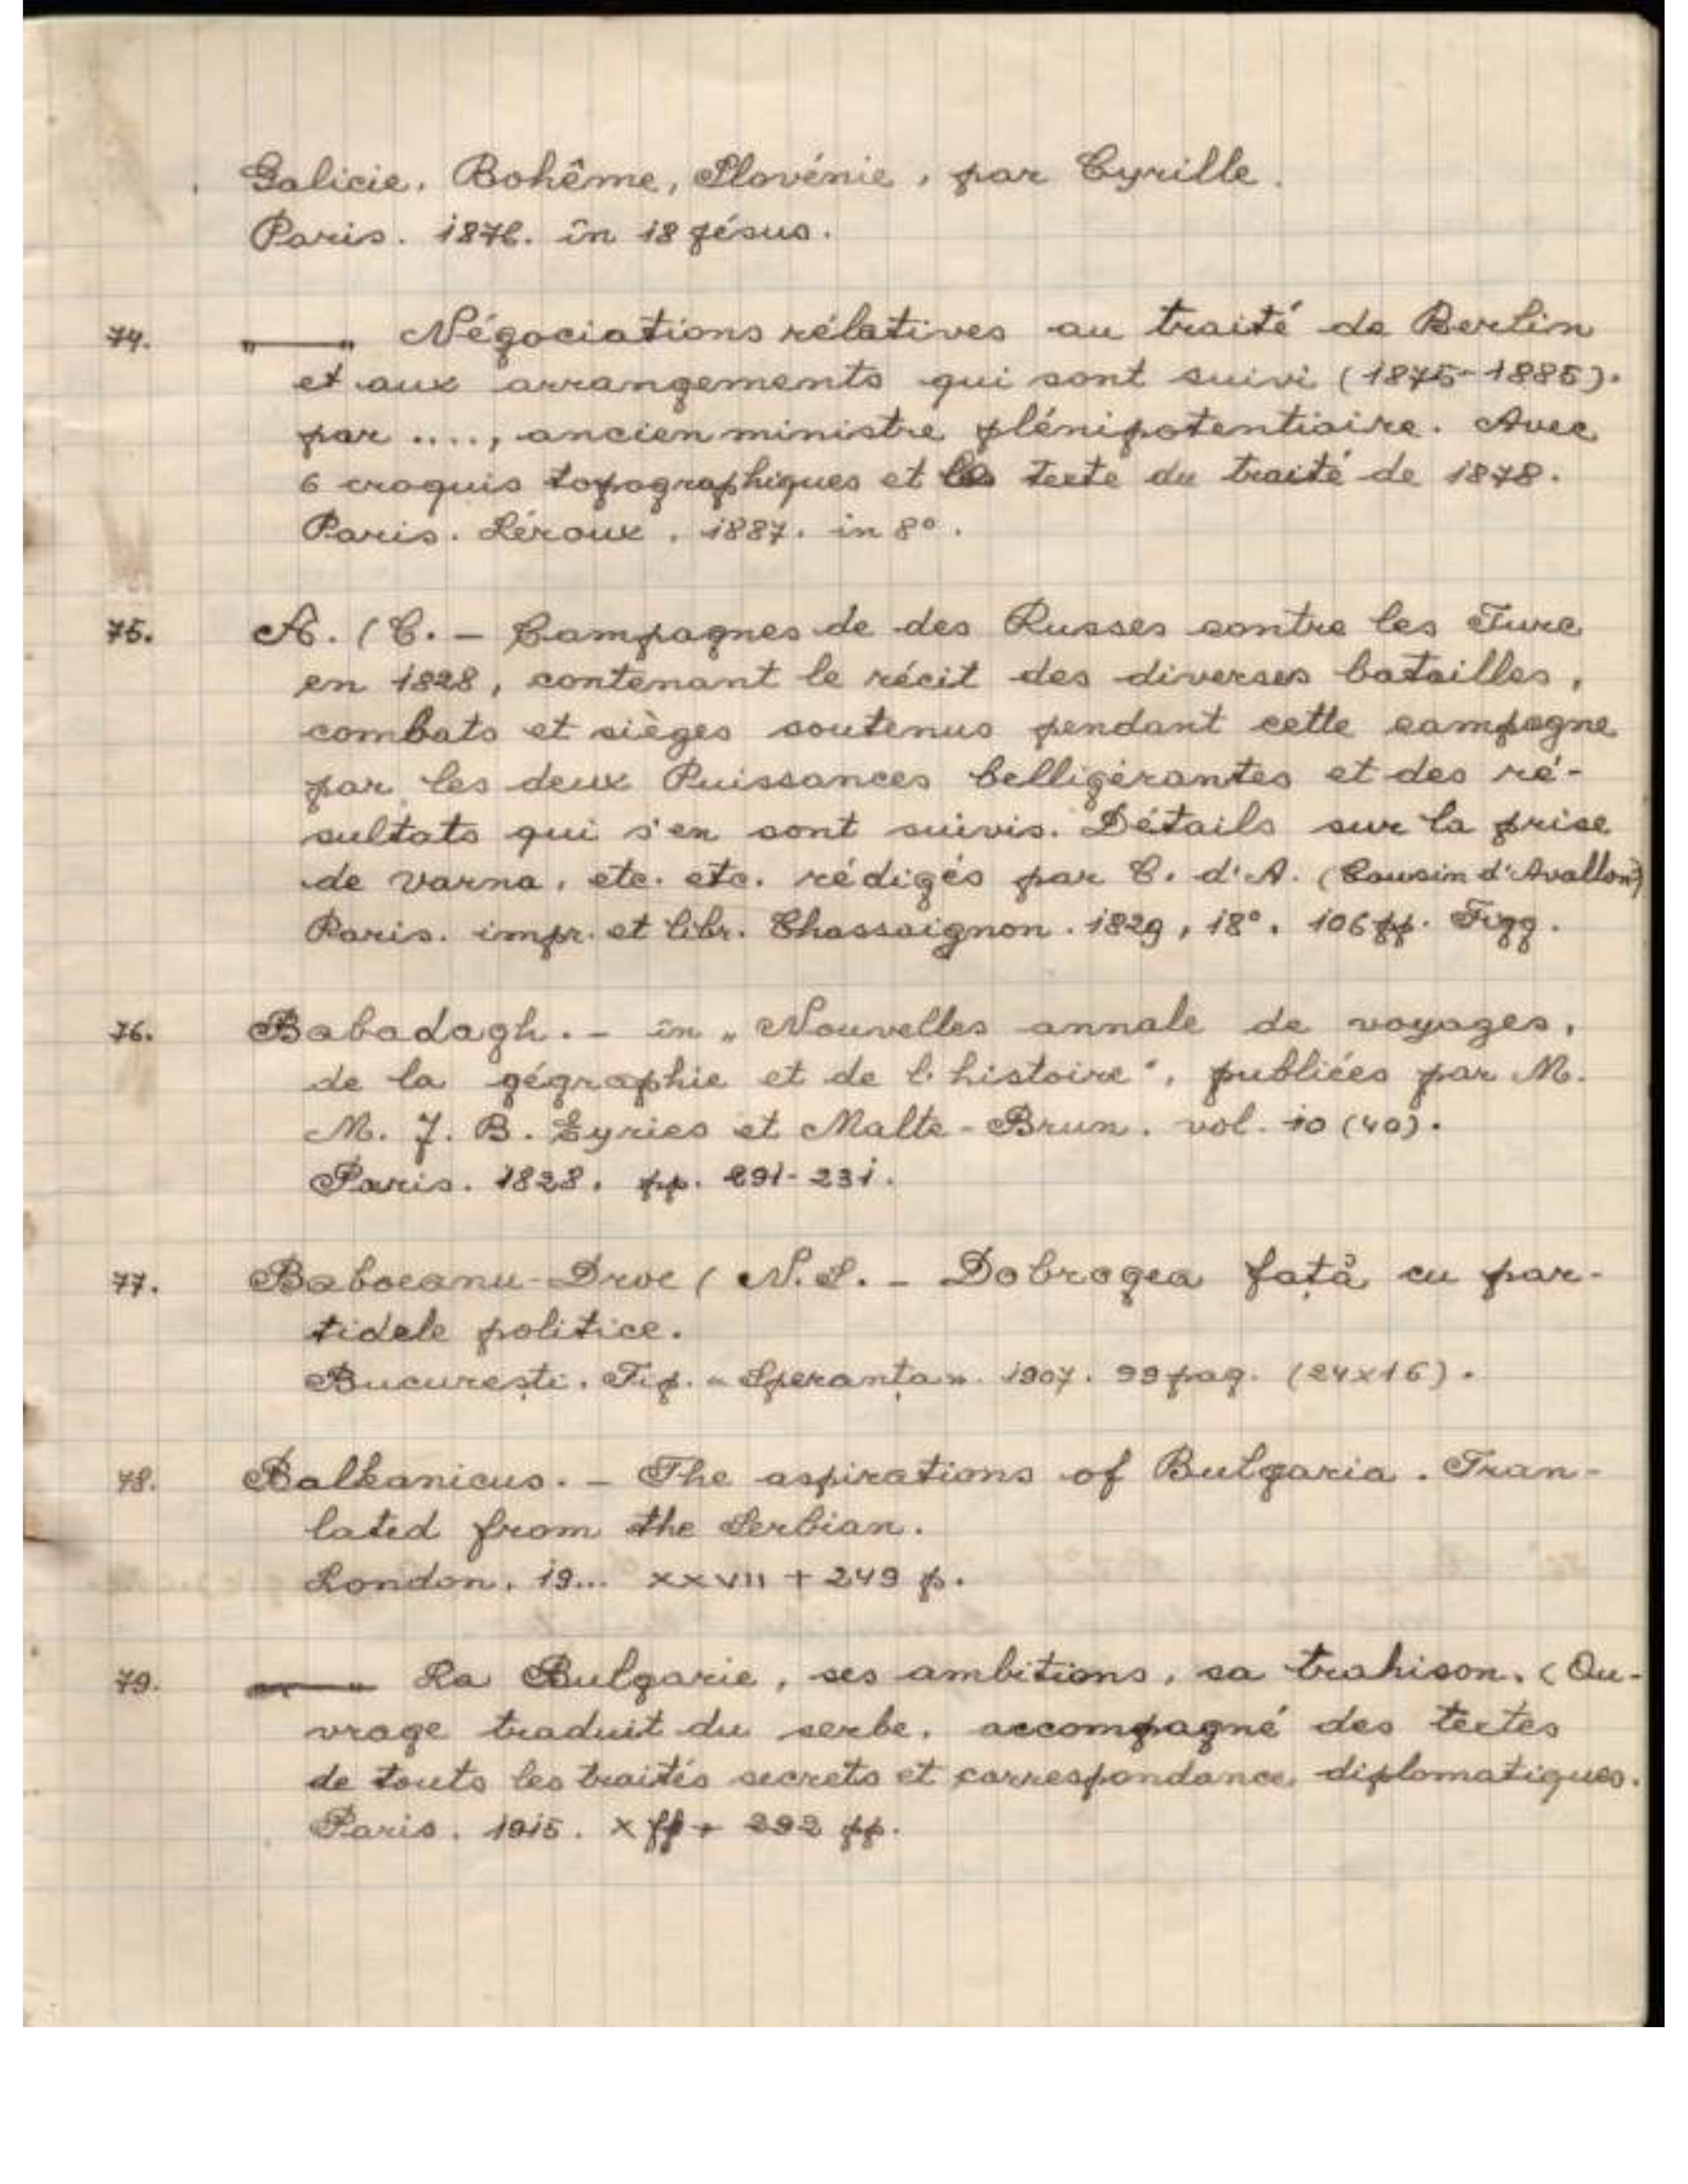 Galicie, Bohême, Slovénie, par Cyrille.
Paris. 1876. în 18 jésus.
74. „———„ Négociations rélatives au traité de Berlin
et aux arrangements qui sont suivi (1875-1885).
par ...., ancien ministre plénipotentiaire. Avec
6 croquis topographiques et les texte du traité de 1878.
Paris. Léroux, 1887. in 8°.
75. A. (C. – Campagnes de des Russes contre les Turc
en 1828, contenant le récit des diverses batailles,
combats et sièges soutenus pendant cette campagne
par les deux Puissances belligérantes et des ré-
sultats qui s'en sont suivis. Détails sur la prise
de Varna, etc. etc. rédigés par C. d'A. (Cousin d'Avallon)
Paris. impr. et libr. Chassaignon. 1829, 18°. 106 pp. Figg.
76. Babadagh. – în „Nouvelles annale de voyages,
de la gégraphie et de l'histoire", publiées par M.
M. J. B. Eyries et Malte-Brun. vol. 10 (40).
Paris. 1828. pp. 291-231.
77. Baboeanu-Droc (N.S. – Dobrogea față cu par-
tidele politice.
București. Tip. „Speranța". 1907. 99 pag. (24x16).
78. Balkanicus. – The aspirations of Bulgaria. Tran-
lated from the Serbian.
London. 19... XXVIII + 249 p.
79. „———„ La Bulgarie, ses ambitions, sa trahison. (Ou-
vrage traduit du serbe, accompagné des textes
de touts les traités secrets et correspondance diplomatiques.
Paris. 1915. X ff + 292 pp.